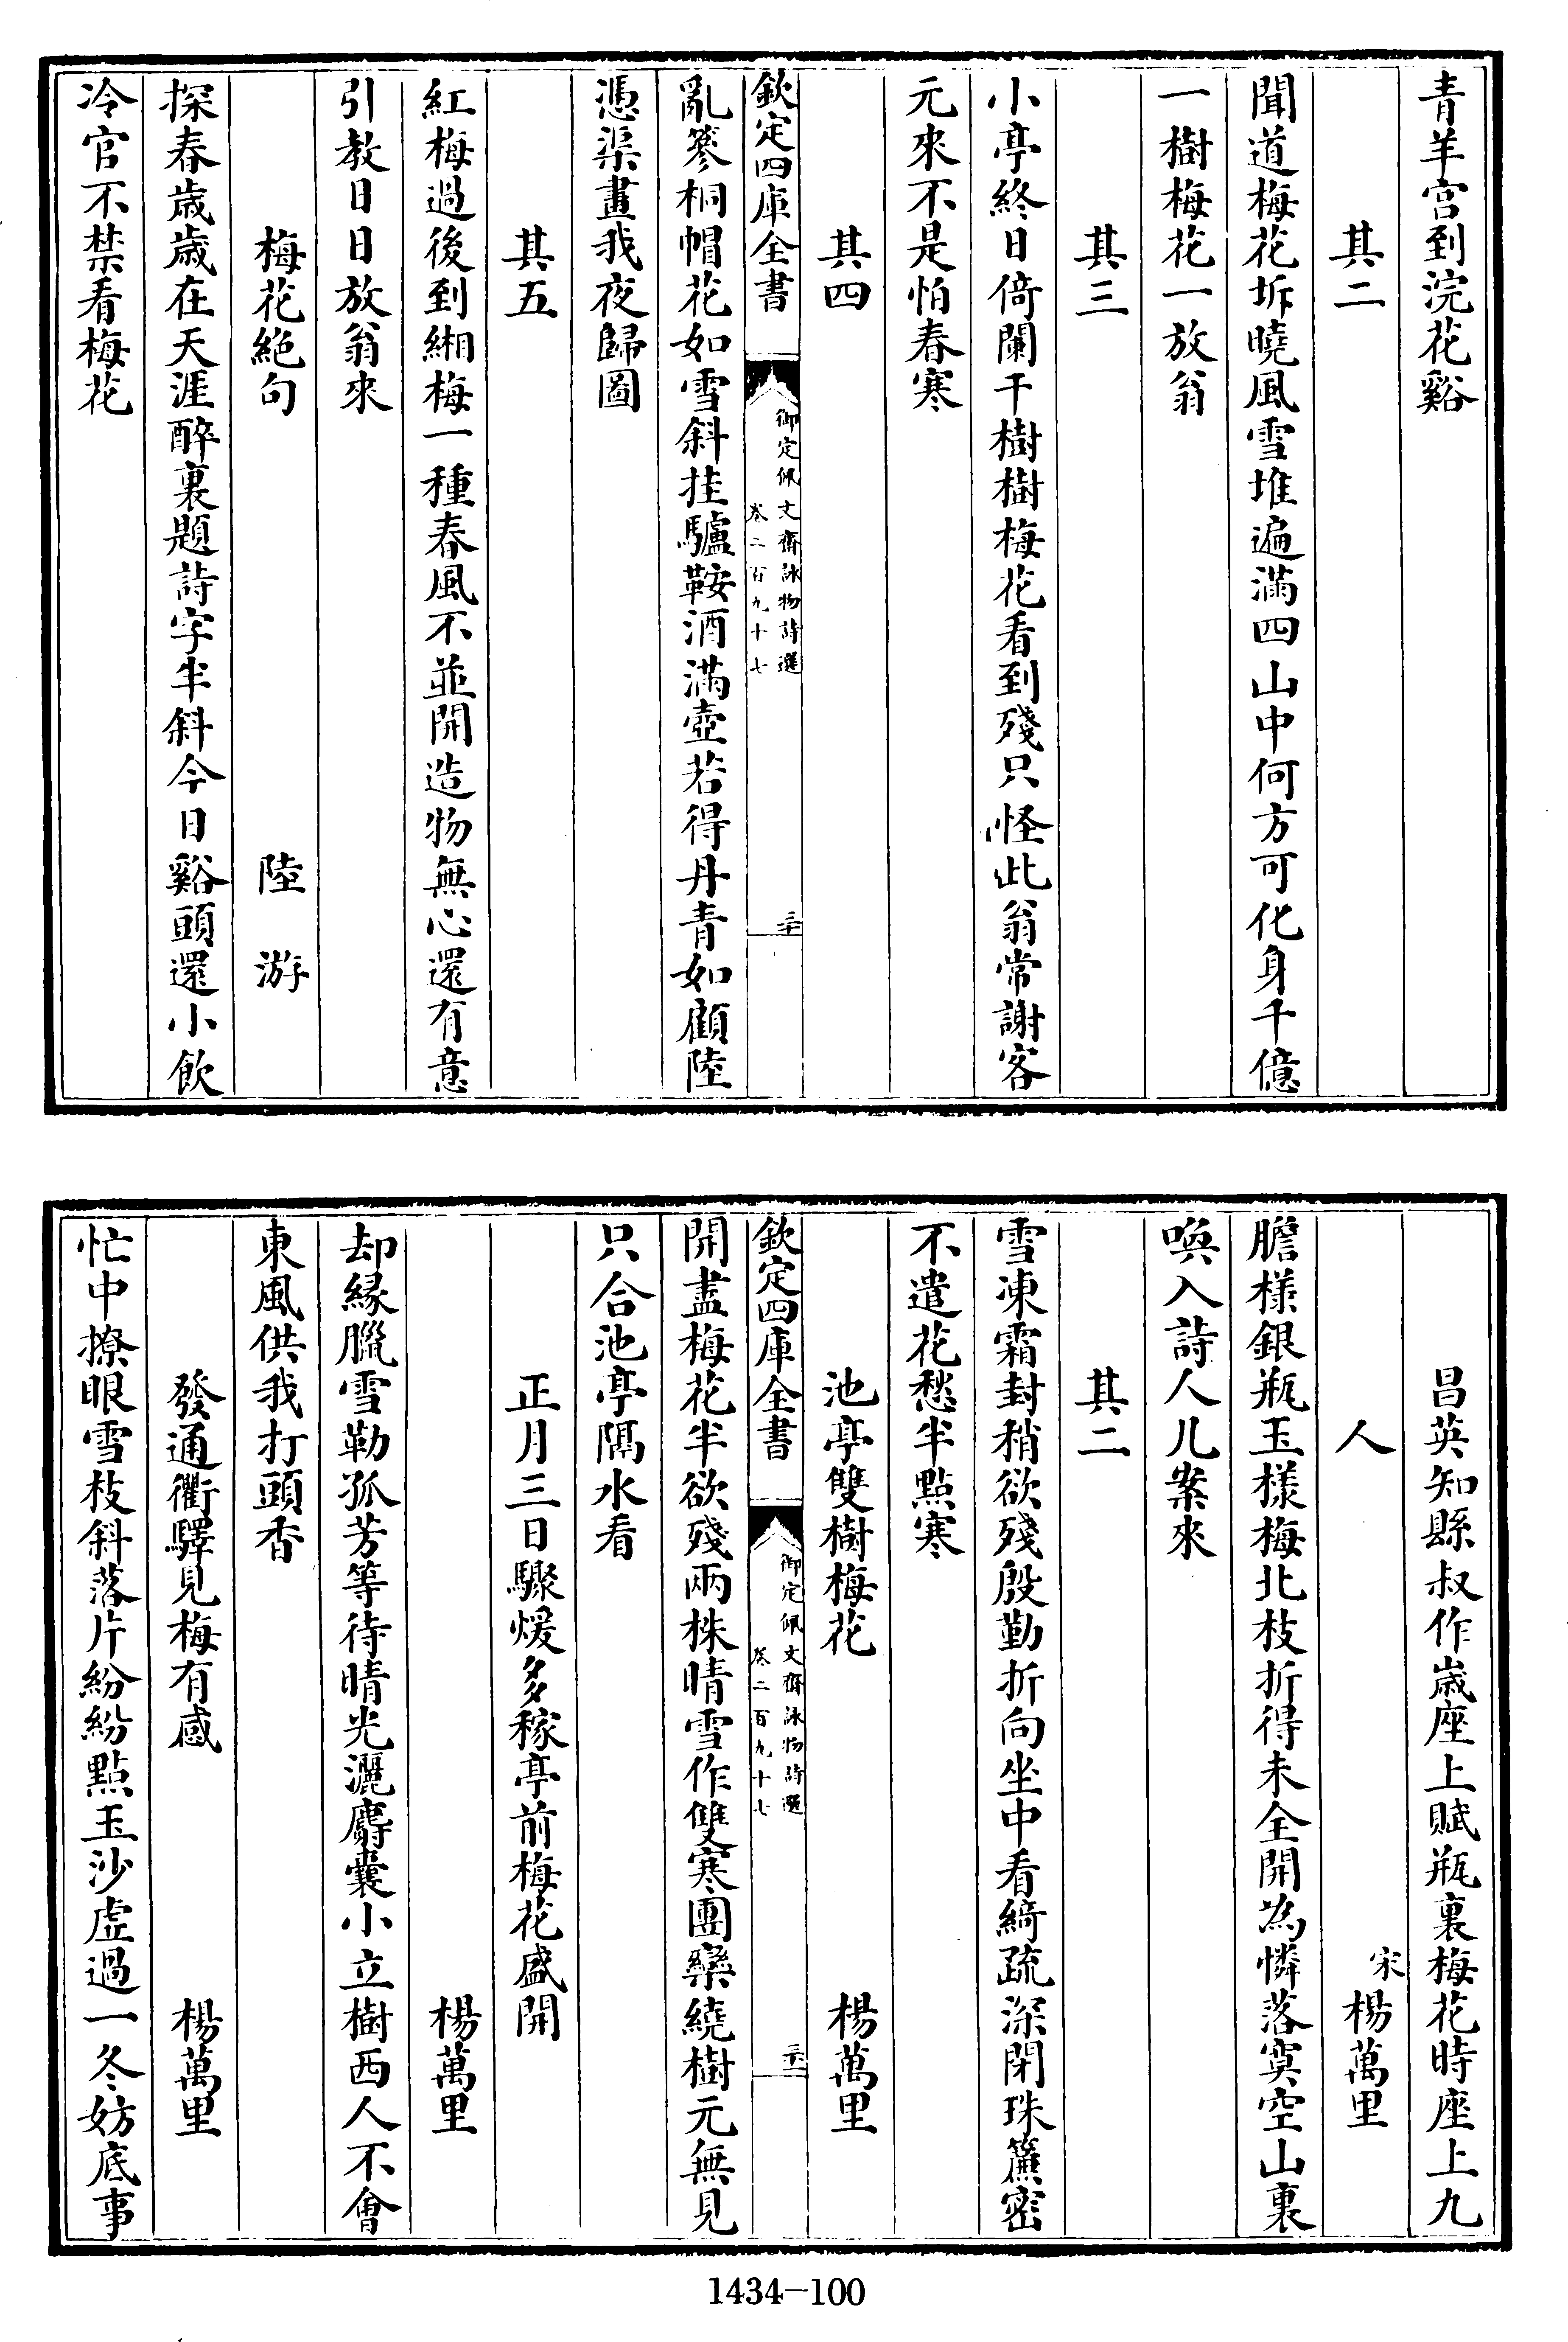 青羊宫到浣花谿
其二
聞道梅花坼曉風雪堆遍滿四山中何方可化身千億
一樹梅花一放翁
其三
小亭終日倚闌干樹樹梅花看到殘只怪此翁常謝客
元來不是怕春寒
其四
欽定四庫全書
御定佩文齋詠物詩選
卷二百九十七
三十
亂篸桐帽花如雪斜挂驢鞍酒滿壺若得丹青如顧陸
憑渠畫我夜歸圖
其五
紅梅過後到緗梅一種春風不並開造物無心還有意
引教日日放翁來
梅花絶句 陸游
探春歲歲在天涯醉裏題詩字半斜今日谿頭還小飲
冷官不禁看梅花
昌英知縣叔作歲座上賦瓶裏梅花時座上九
人 宋楊萬里
膽樣銀瓶玉樣梅北枝折得未全開為憐落寞空山裏
喚入詩人几案來
其二
雪凍霜封稍欲殘殷勤折向坐中看綺疏深閉珠簾密
不遣花愁半點寒
池亭雙樹梅花 楊萬里
欽定四庫全書
御定佩文齋詠物詩選
卷二百九十七
三十一
開盡梅花半欲殘兩株晴雪作雙寒團欒繞樹元無見
只合池亭隔水看
正月三日驟煖多稼亭前梅花盛開
楊萬里
却緣臘雪勒孤芳等待晴光灑麝囊小立樹西人不會
東風供我打頭香
發通衢驛見梅有感 楊萬里
忙中撩眼雪枝斜落片紛紛點玉沙虛過一冬妨底事
1434-100